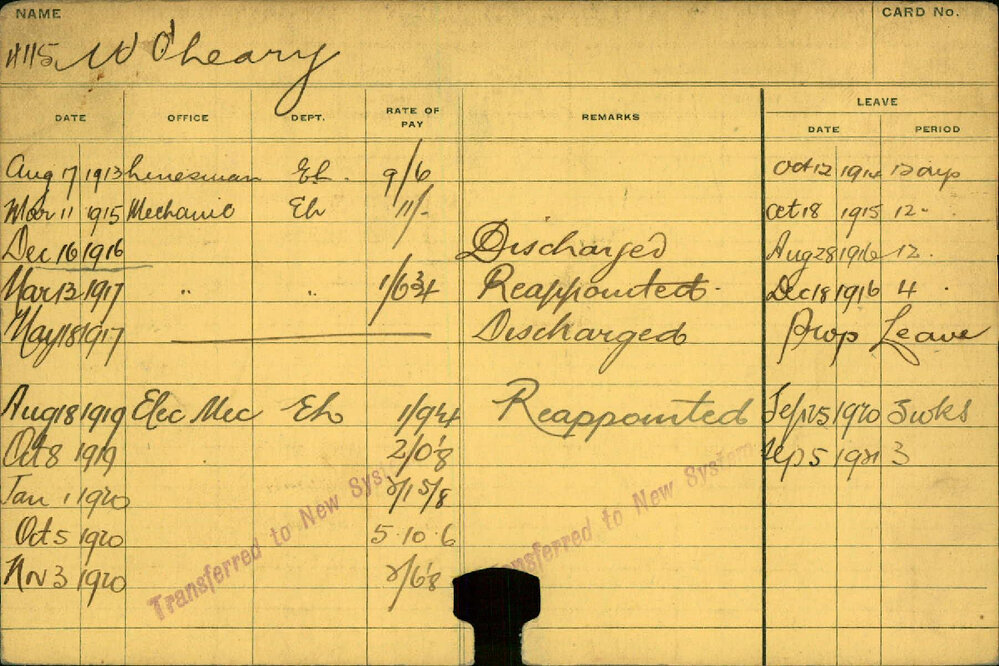 NAME
CARD No.
4115 W O'Leary
DATE OFFICE DEPT. RATE OF PAY REMARKS LEAVE
DATE PERIOD
Aug 17 1913 Linesman El. 9/6 Oct 12 1914 12 days
Mar 11 1915 Mechanic El 11/- Oct 18 1915 12 "
Dec 16 1916 Discharged Aug 28 1916 12 "
Mar 13 1917 " " 1/6 3/4 Reappointed Dec 18 1916 4 "
May 18 1917 Discharged Prop Leave
Aug 18 1919 Elec Mec El 1/9 Reappointed Sep 25 1920 3 wks
Oct 8 1919 2/0 Sep 5 1921 3
Jan 1 1920 2/1 5/8
Oct 5 1920 5.10.6
Nov 3 1920 2/6
Transferred to New System
Transferred to New System